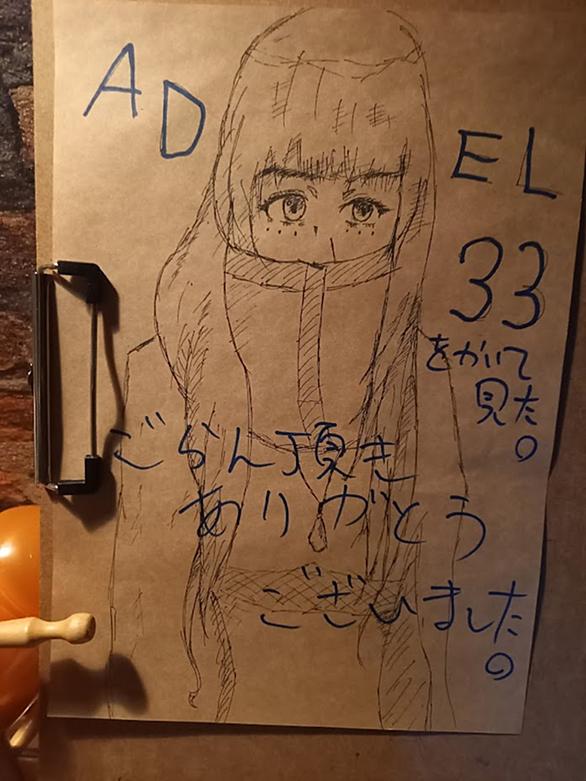 ADEL
33
をかいて
見た。
ごらん頂き
ありがとう
ございました。